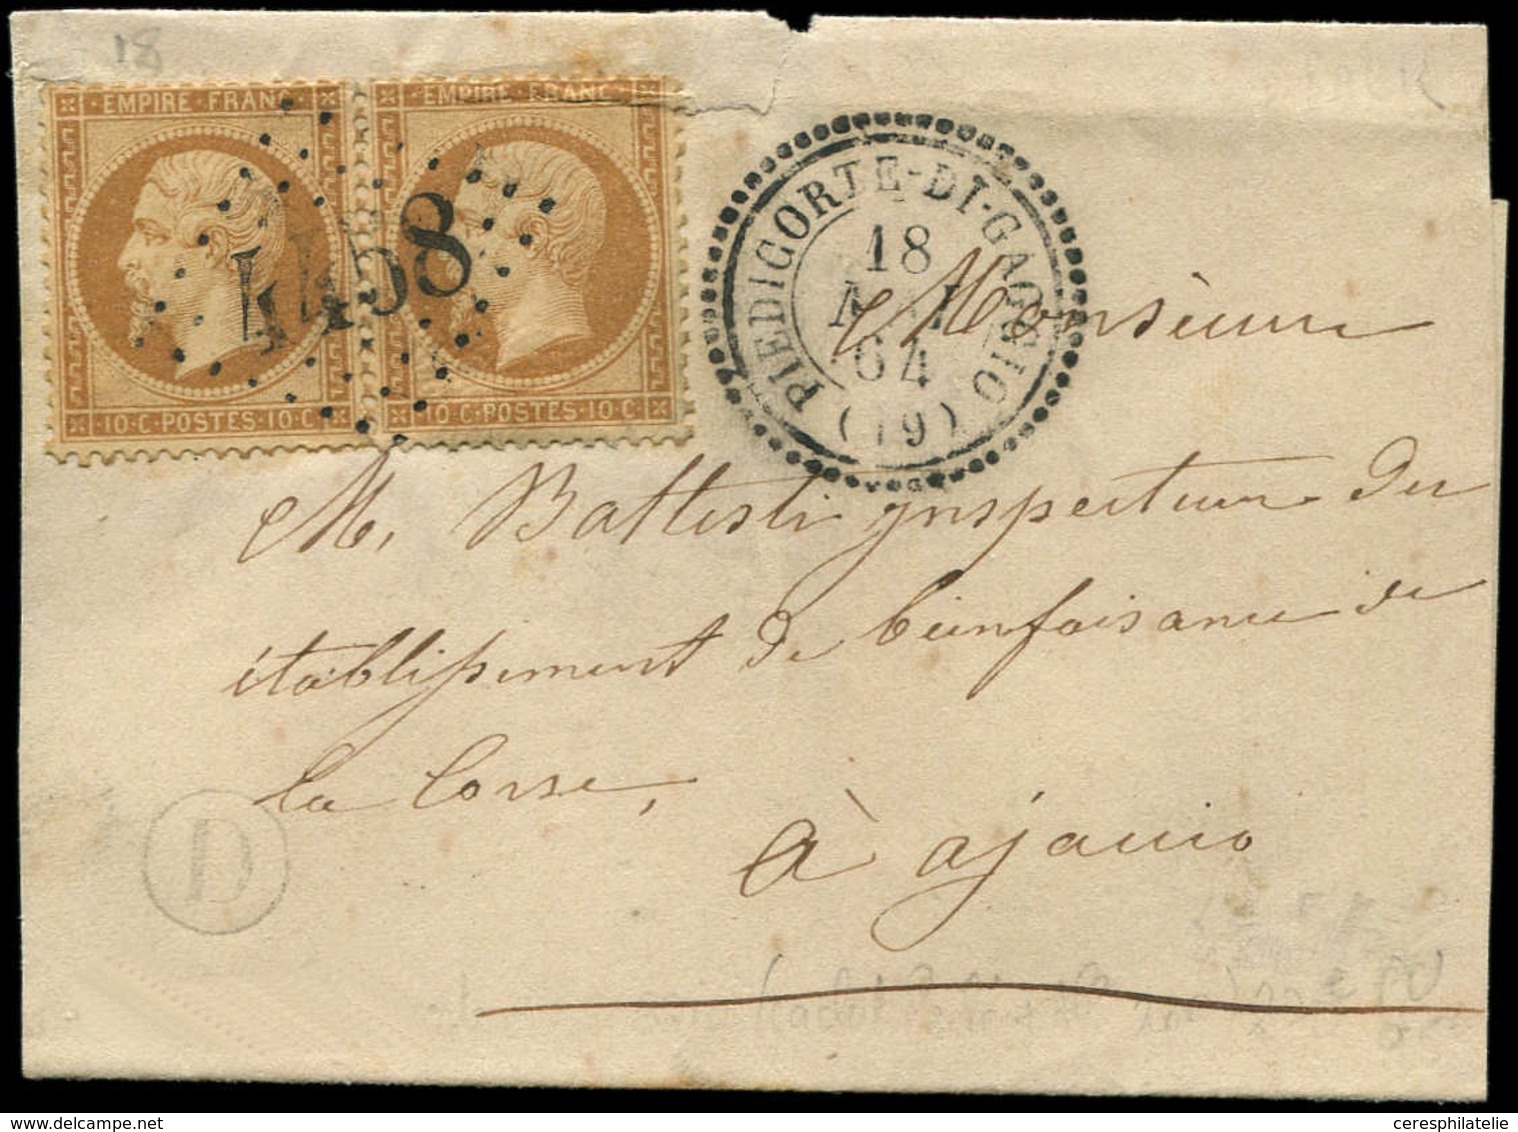 18
EMPIRE FRANC
EMPIRE FRANC
4458
10·C·POSTES·10·C
10·C·POSTES·10·C
PIEDICORTE-DI-GAGGIO
18
64
(19)
Monsieur
M. Battesti ynspecteur des
établissement de bienfaisance de
la Corse,
à ajaccio
D
ceresphilatelie